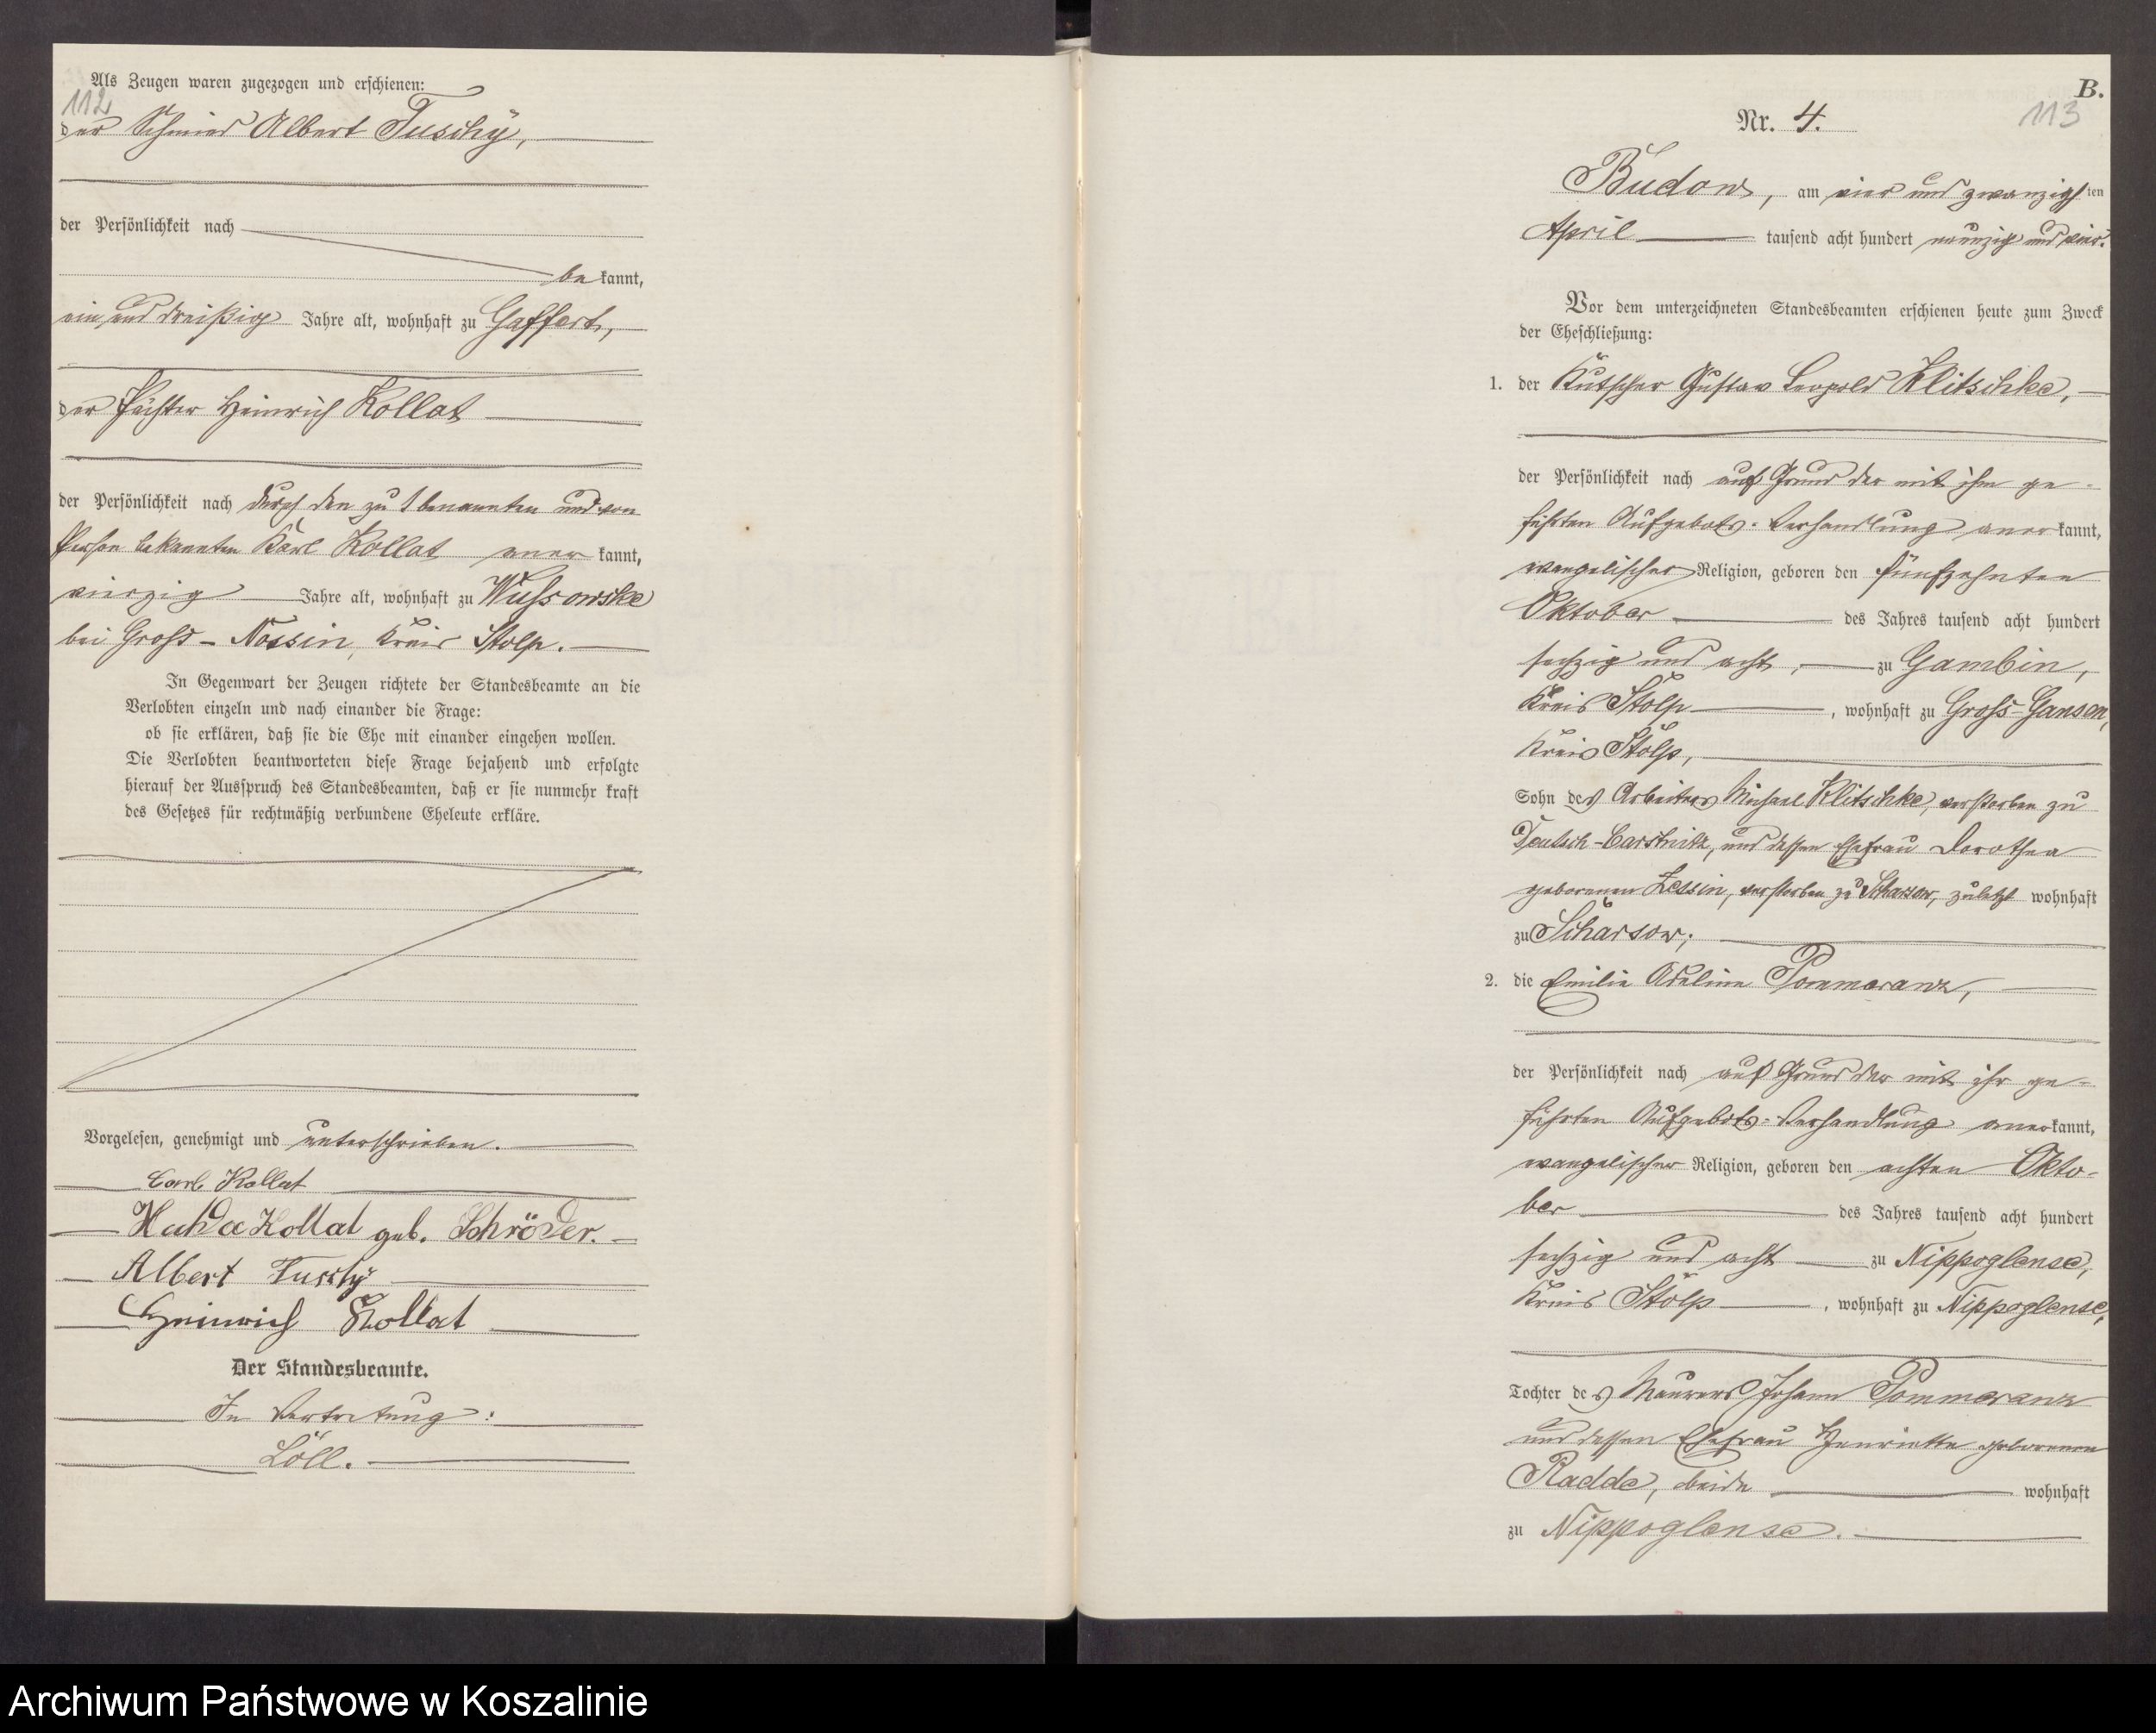 Als Zeugen waren zugezogen und erschienen:
112
der Schmied Albert Tuschÿ,
der Persönlichkeit nach
be kannt,
ein und dreißig Jahre alt, wohnhaft zu Gaffert,
der Pächter Heinrich Kollat
der Persönlichkeit nach durch den zu 1 benannten und von
Person bekannten Karl Kollat aner kannt,
vierzig Jahre alt, wohnhaft zu Wussowske
bei Gross-Nossin, Kreis Stolp.
In Gegenwart der Zeugen richtete der Standesbeamte an die
Verlobten einzeln und nach einander die Frage:
ob sie erklären, daß sie die Ehe mit einander eingehen wollen.
Die Verlobten beantworteten diese Frage bejahend und erfolgte
hierauf der Ausspruch des Standesbeamten, daß er sie nunmehr kraft
des Gesetzes für rechtmäßig verbundene Eheleute erkläre.
Vorgelesen, genehmigt und unterschrieben.
Carl Kollat
Kollat geb. Schröder.
Albert Tuschÿ
Heinrich Kollat
Der Standesbeamte.
In Vertretung:
Löll.
B.
113
Nr. 4.
Budow, am vier und zwanzigsten
April tausend acht hundert neunzig und vier.
Vor dem unterzeichneten Standesbeamten erschienen heute zum Zweck
der Eheschließung:
1. der Kutscher Gustav Leopold Klitschke,
der Persönlichkeit nach auf Grund der mit ihm ge-
führten Aufgebots-Verhandlung aner kannt,
evangelischer Religion, geboren den fünfzehnten
Oktober des Jahres tausend acht hundert
sechzig und acht, zu Gambin,
Kreis Stolp, wohnhaft zu Gross-Gansen,
Kreis Stolp,
Sohn des Arbeiters Michael Klitschke, verstorben zu
Deutsch-Carstnitz, und dessen Ehefrau Dorothea
geborenen Zessin, verstorben zu Scharsow, zuletzt wohnhaft
zu Scharsow;
2. die Emilie Adeline Pommeranz,
der Persönlichkeit nach auf Grund der mit ihr ge-
führten Aufgebots-Verhandlung aner kannt,
evangelischer Religion, geboren den achten Okto-
ber des Jahres tausend acht hundert
sechzig und acht zu Nippoglense,
Kreis Stolp, wohnhaft zu Nippoglense,
Tochter des Maurers Johann Pommeranz
und dessen Ehefrau Henriette geborenen
Radde, beide wohnhaft
zu Nippoglense.
Archiwum Państwowe w Koszalinie